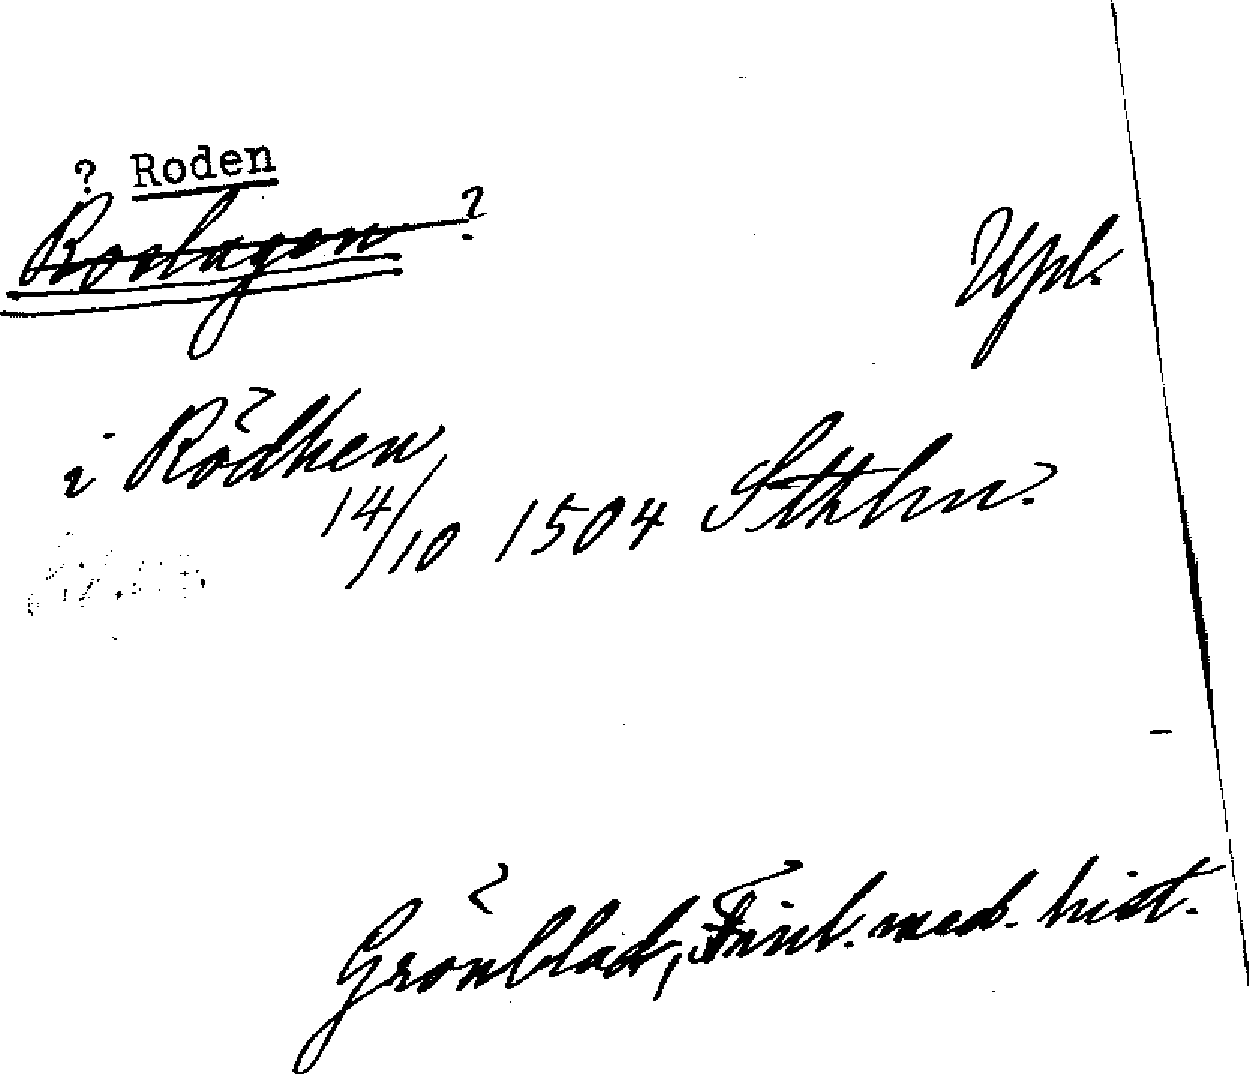 ? Roden
Roslagen ?
Upl.
i Rödhen
14/10 1504 Sthlm.
Grönblad, Finl. med. hist.